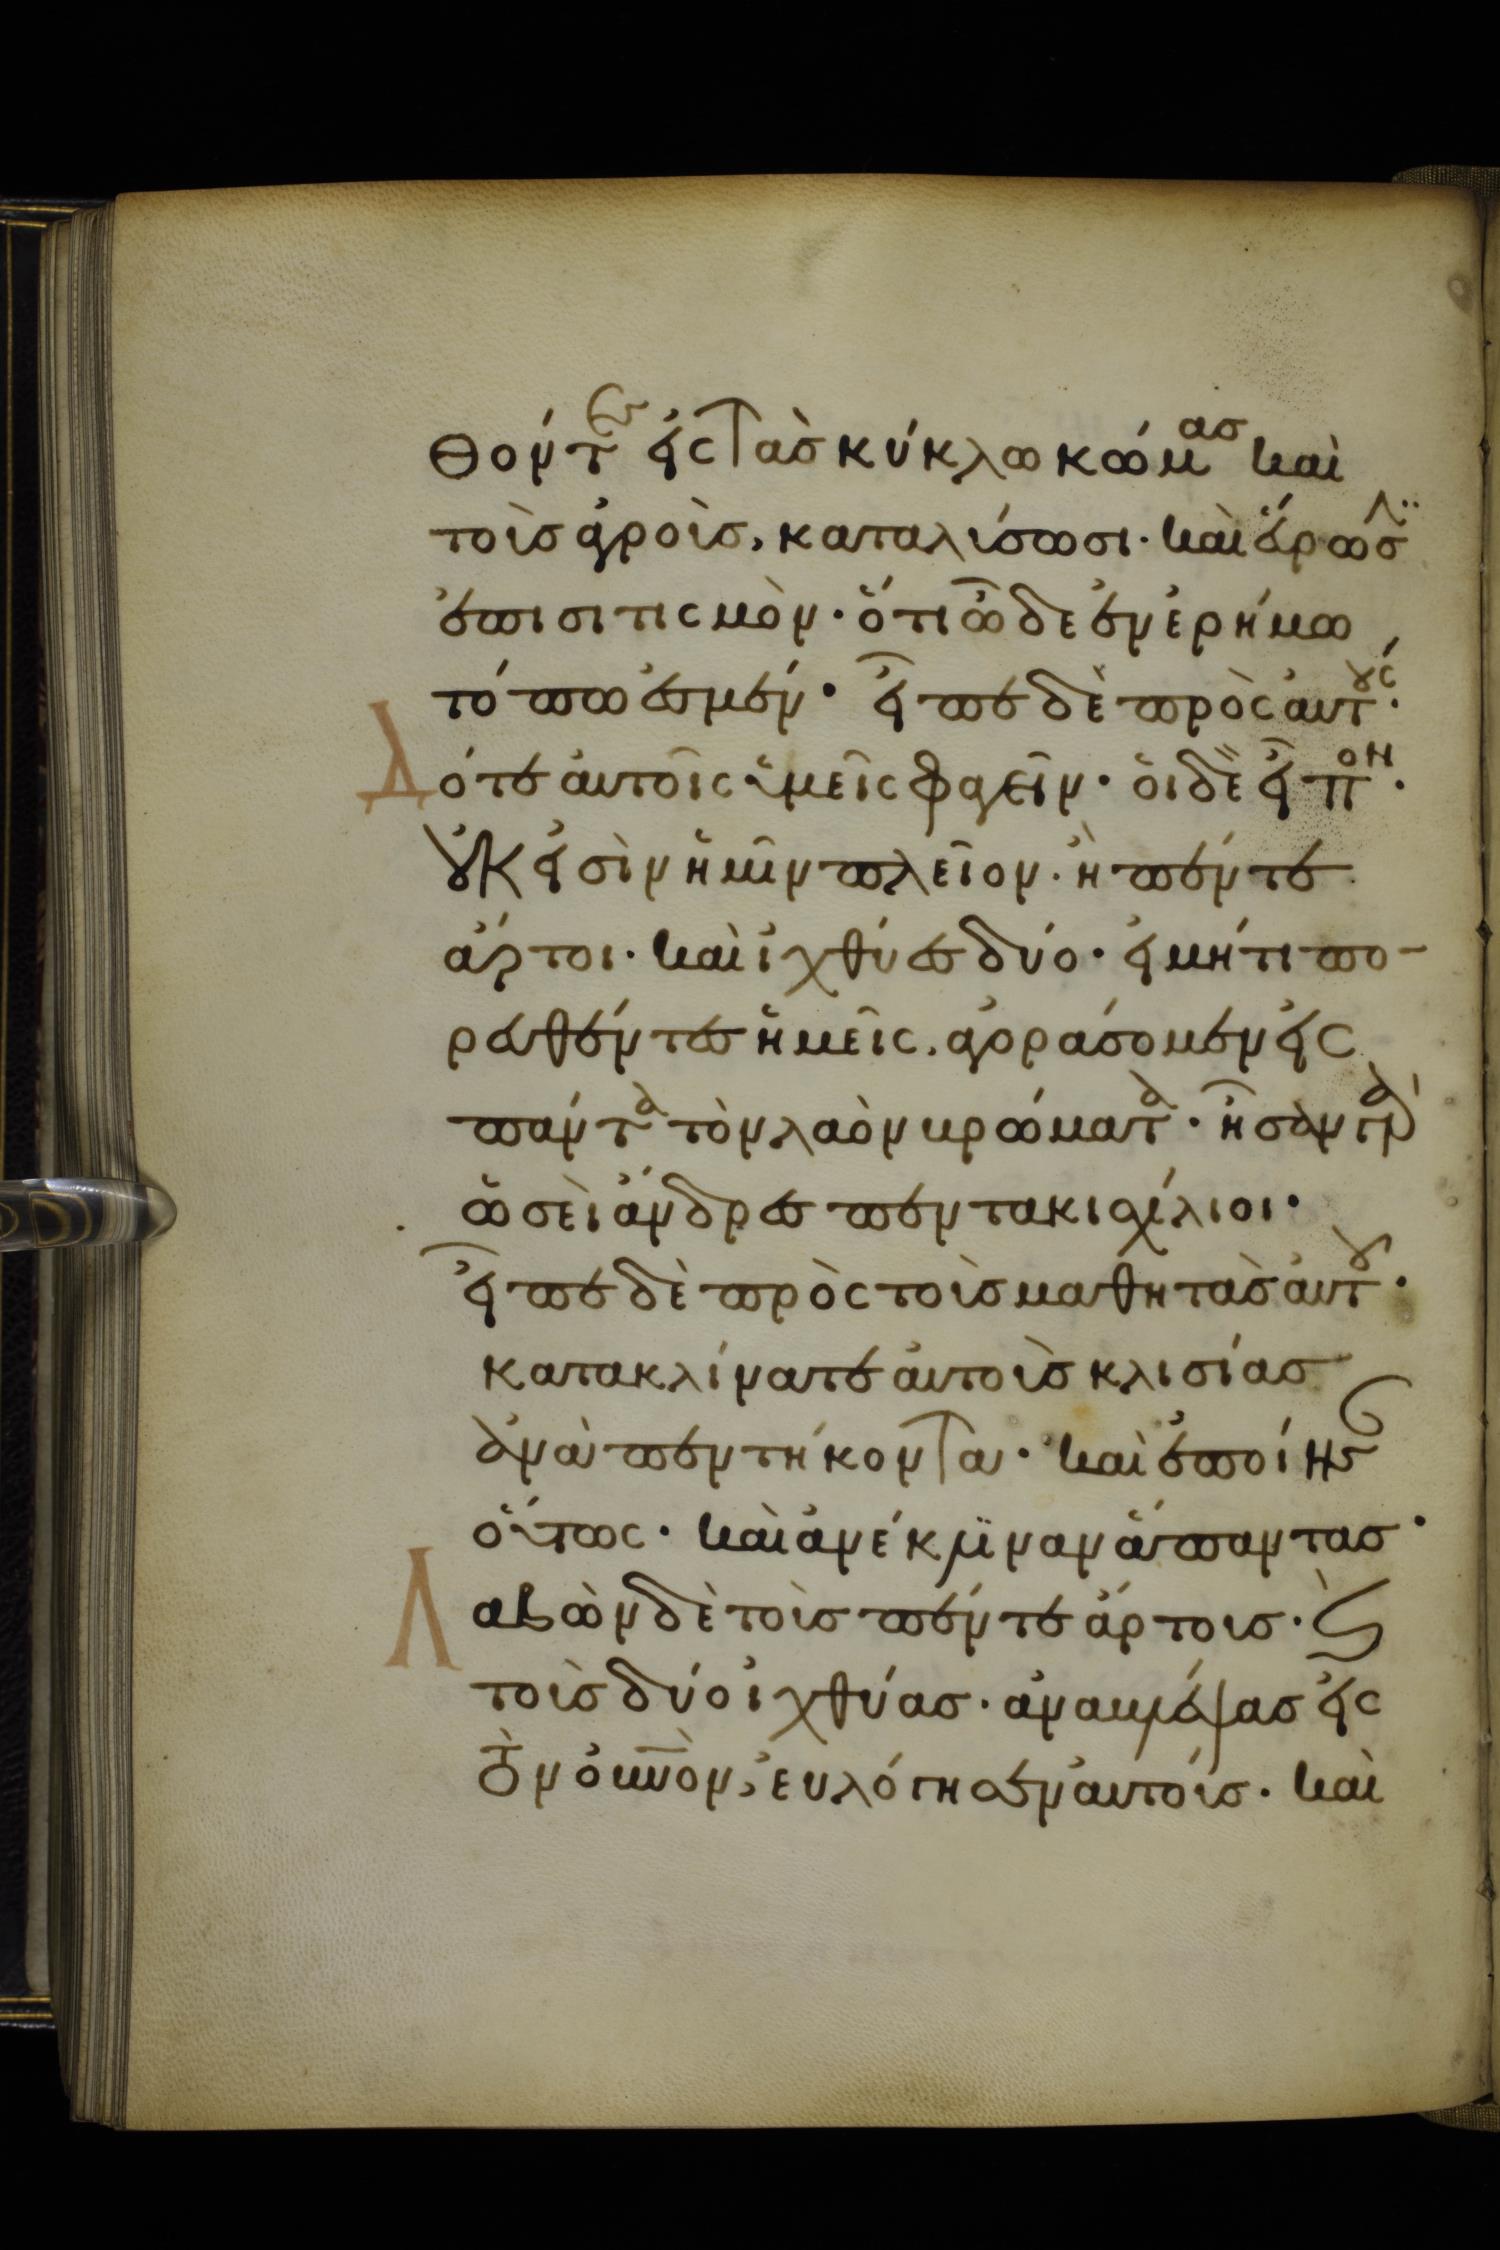 θόντες εἰς τὰς κύκλω κώμας καὶ
τοὺς ἀγροὺς, καταλύσωσι· καὶ εὕρωσιν
ἐπισιτισμὸν· ὅτι ὧδε ἐν ἐρήμω
τόπω ἐσμέν· εἶπε δὲ πρὸς αὐτούς·
Δότε αὐτοῖς ὑμεῖς φαγεῖν· οἱ δὲ εἶπον·
οὐκ εἰσὶν ἡμῖν πλεῖον· ἢ πέντε
ἄρτοι· καὶ ἰχθύες δύο· εἰ μήτι πο-
ρευθέντες ἡμεῖς, ἀγοράσομεν εἰς
πάντα τὸν λαὸν βρώματα· ἦσαν γὰρ
ὡσεὶ ἄνδρες πεντακισχίλιοι·
εἶπε δὲ πρὸς τοὺς μαθητὰς αὐτοῦ·
κατακλίνατε αὐτοὺς κλισίας
ἀνὰ πεντήκοντα· καὶ ἐποίησαν
οὕτως· καὶ ἀνέκλιναν ἅπαντας·
Λαβὼν δὲ τοὺς πέντε ἄρτους· καὶ
τοὺς δύο ἰχθύας· ἀναβλέψας εἰς
τὸν οὐνὸν, εὐλόγησεν αὐτούς· καὶ